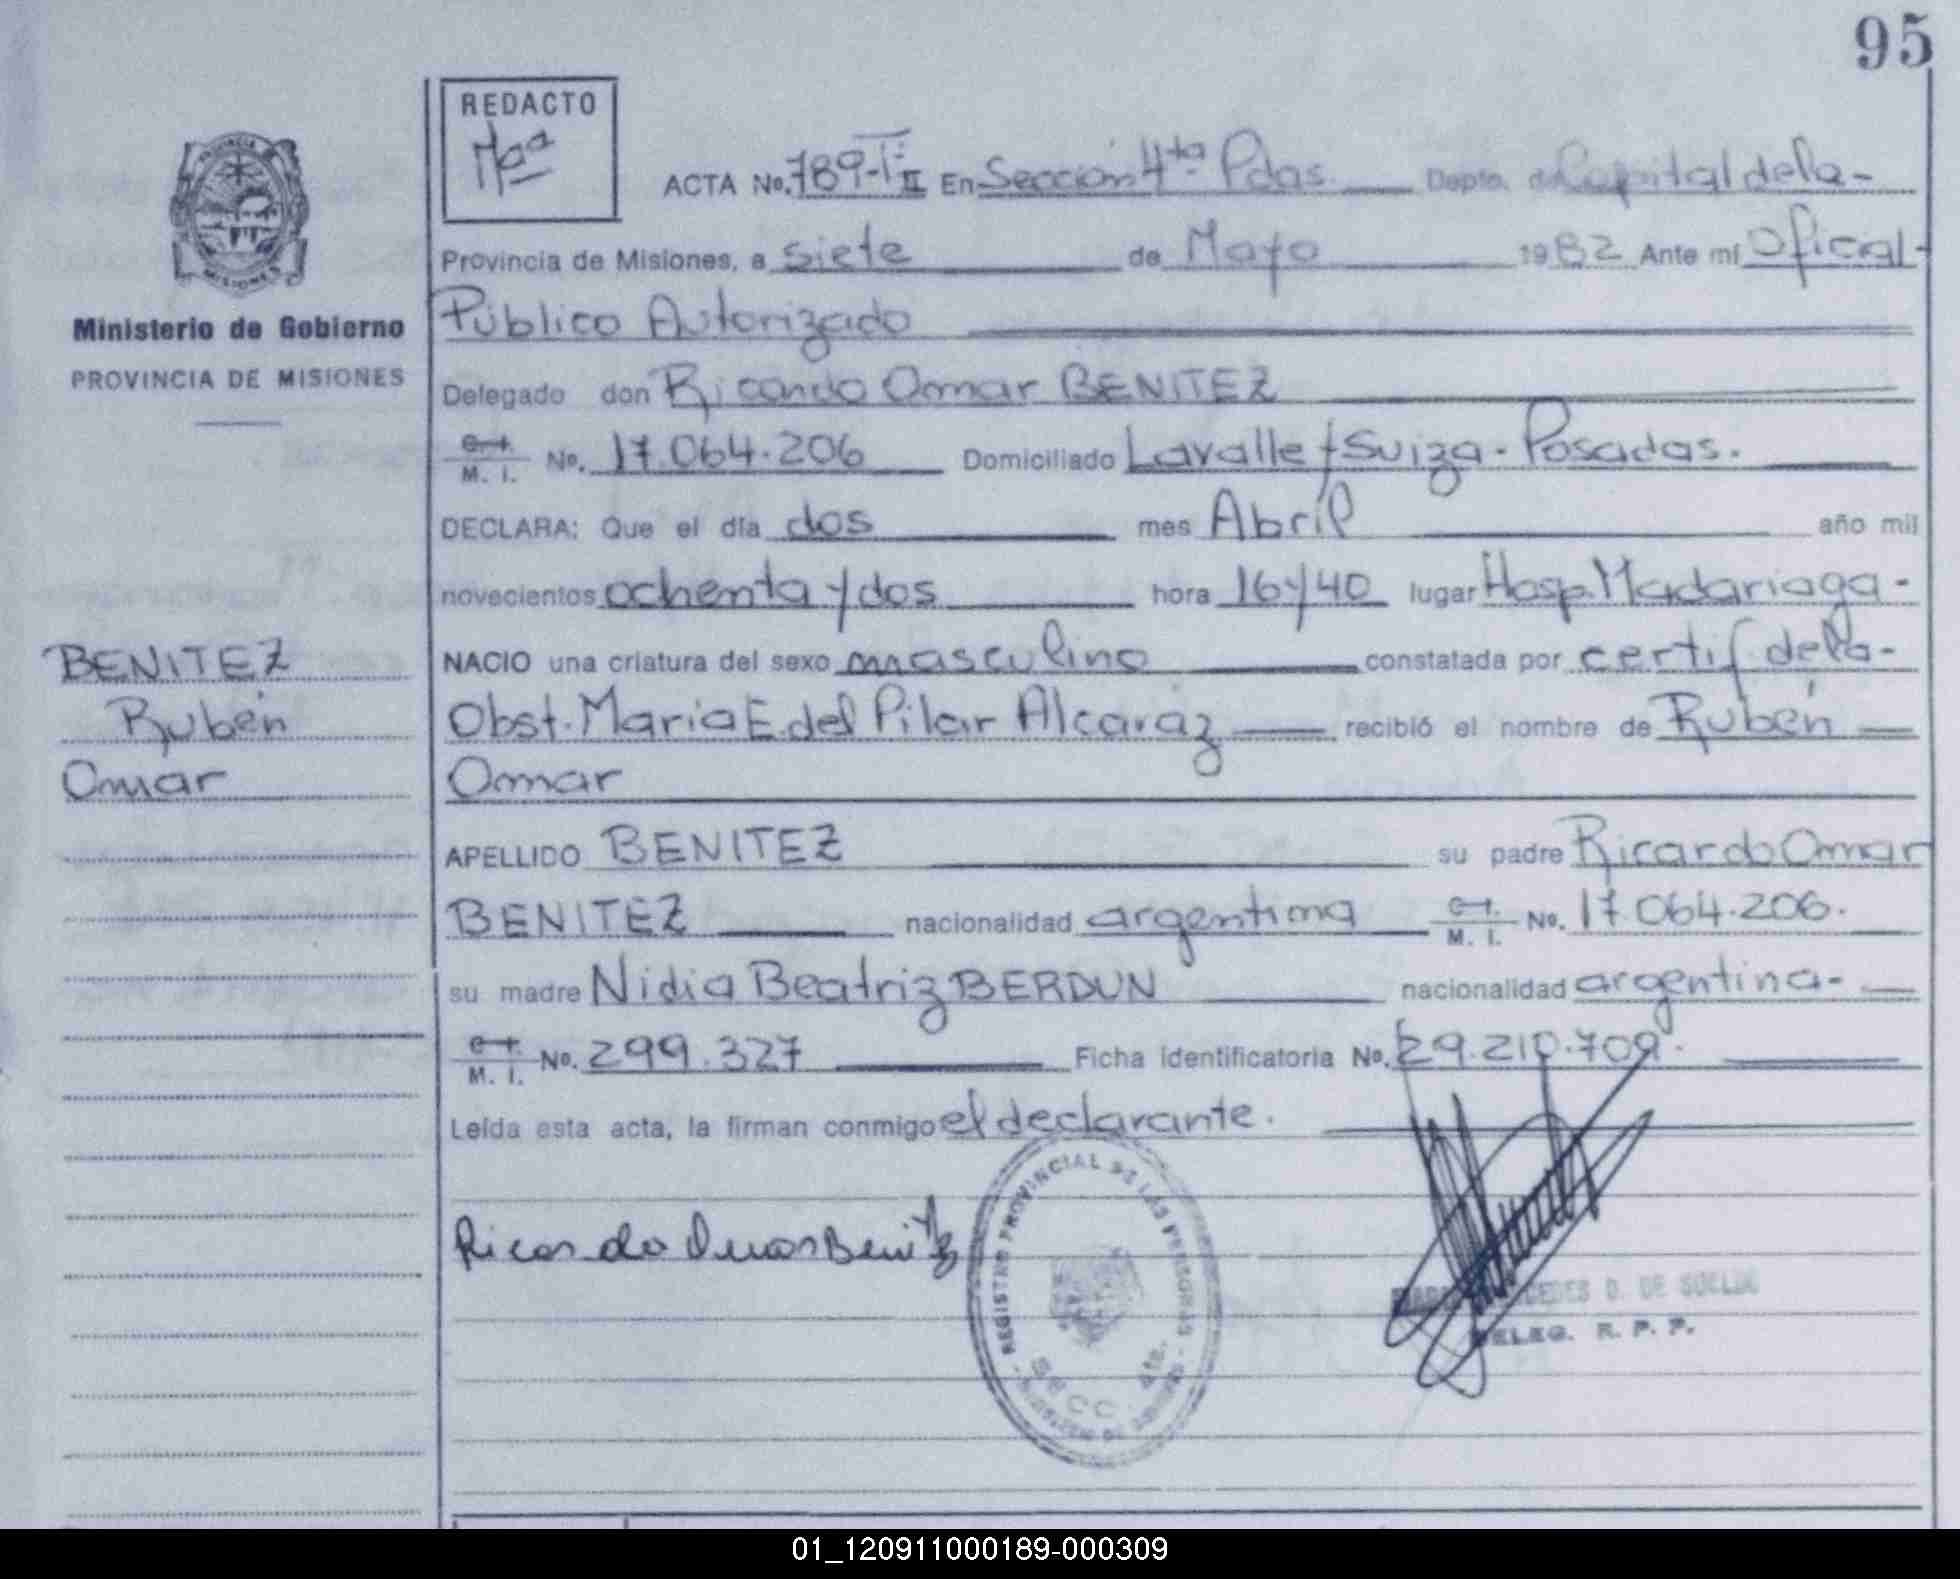 95
REDACTO
PROVINCIA
MISIONES
Ministerio de Gobierno
PROVINCIA DE MISIONES
ACTA No. 789-T:II En Sección 4ta Pdas. Depto. de Capital de la-
Provincia de Misiones, a siete de Mayo 1982 Ante mí Oficial-
Público Autorizado
Delegado don Ricardo Omar BENITEZ
C. I. M. I. No. 17.064.206 Domiciliado Lavalle y Suiza - Posadas.
DECLARA: Que el día dos mes Abril año mil
novecientos ochenta y dos hora 16y40 lugar Hosp. Madariaga-
NACIO una criatura del sexo masculino constatada por certif de la-
Obst. Maria E. del Pilar Alcaraz recibió el nombre de Rubén
Omar
APELLIDO BENITEZ su padre Ricardo Omar
BENITEZ nacionalidad argentina C. I. M. I. No. 17.064.206.
su madre Nidia Beatriz BERDUN nacionalidad argentina-
C. I. M. I. No. 299.327 Ficha identificatoria No. 29.210.709.
Leída esta acta, la firman conmigo el declarante.
BENITEZ
Rubén
Omar
Ricardo Omar Benitez
REGISTRO PROVINCIAL DE LAS PERSONAS
Secc 4ta.
D. DE
DELEG. R. P. P.
01_120911000189-000309